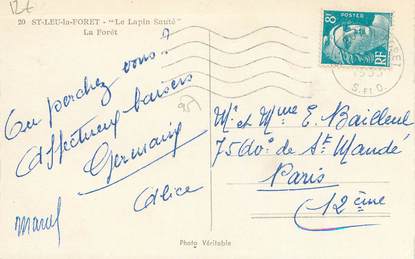 12€
20 ST-LEU-la-FORET - "Le Lapin Sauté"
La Forêt
POSTES
8F
RF
FORET
1953
S. ET O.
Ou perchez vous ?
Affectueux baisers
Germaine
Alice
Marcel
95
Mr et Mme E. Bailleul
75 Avº de St Mandé
Paris
12 ème
Photo Véritable